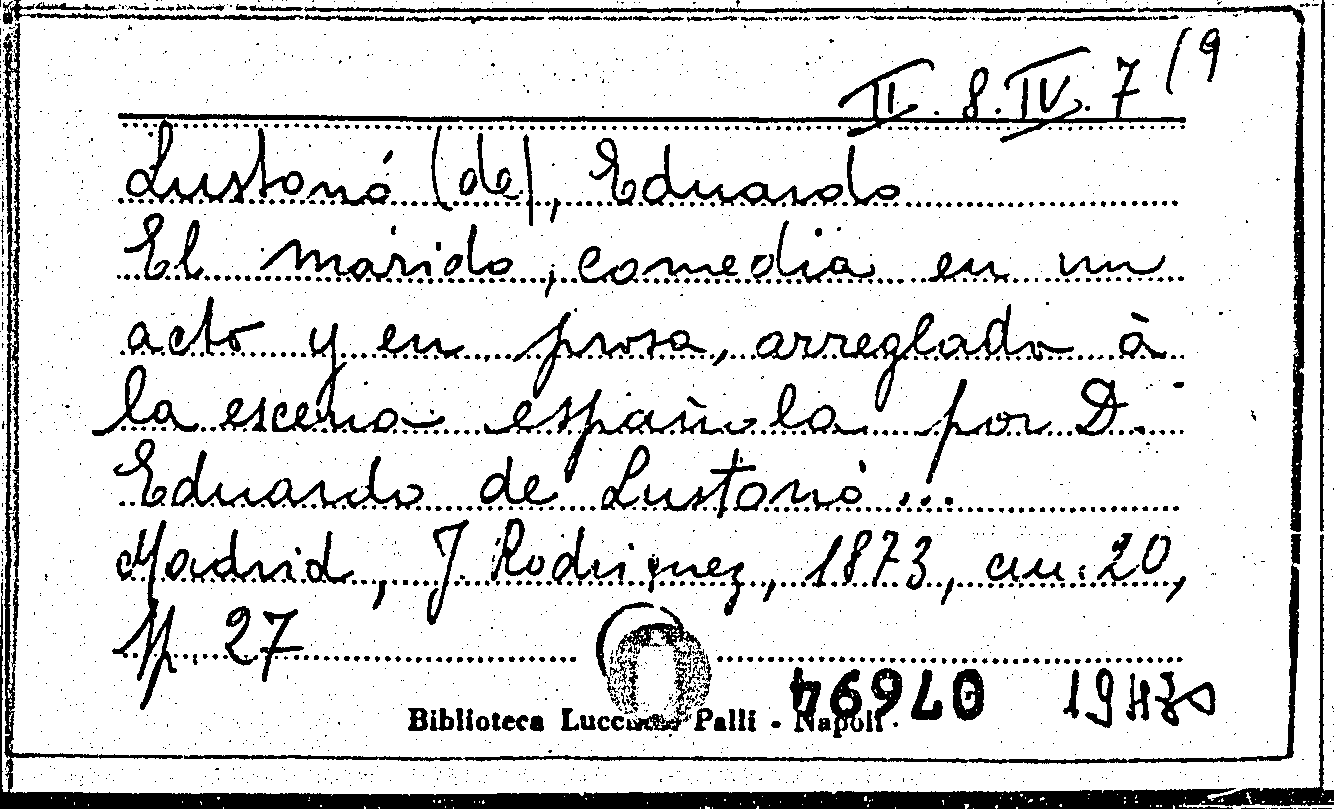 II. 8. IV. 7 (9
Lustonó (de), Eduardo
El marido, comedia en un
acto y en prosa, arreglado à
la escena española por D.
Eduardo de Lustonó...
Madrid, J. Rodriguez, 1873, cm. 20,
p. 27
Biblioteca Lucchesi Palli - Napoli